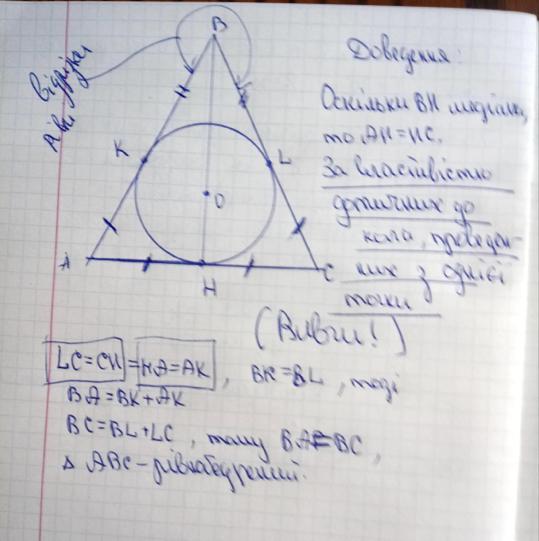 B
Доведення:
відрізки
Рівні
Оскільки BH медіана,
то AH=HC.
За властивістю
дотичних до
кола, проведен-
них з однієї
точки
K
L
O
A
H
C
(Вивчи!)
LC=CH=HA=AK, BK=BL, тоді
BA=BK+AK
BC=BL+LC, тому BA=BC,
Δ ABC-рівнобедрений.